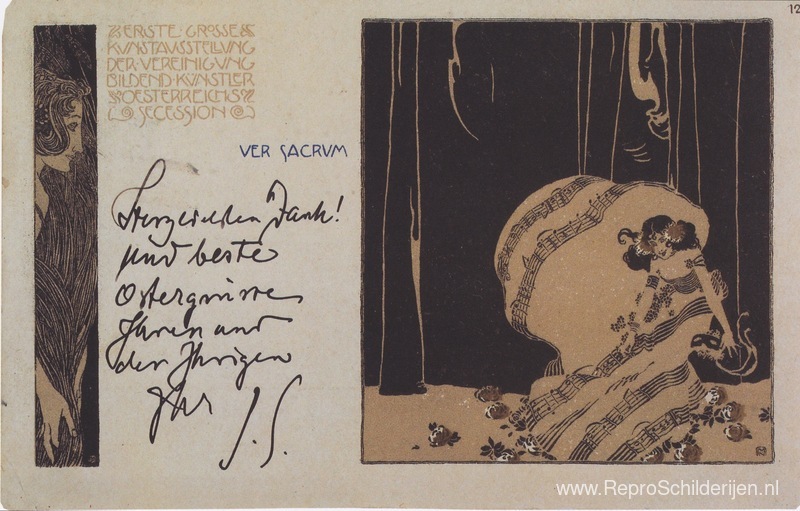 ERSTE GROSSE
KUNSTAUSSTELLUNG
DER VEREINIGUNG
BILDEND KÜNSTLER
OESTERREICHS
SECESSION
VER SACRVM
Herzlichen Dank!
und beste
Ostergrüsse
Ihnen und
den Ihrigen
Ihr
J. S.
12
www.ReproSchilderijen.nl